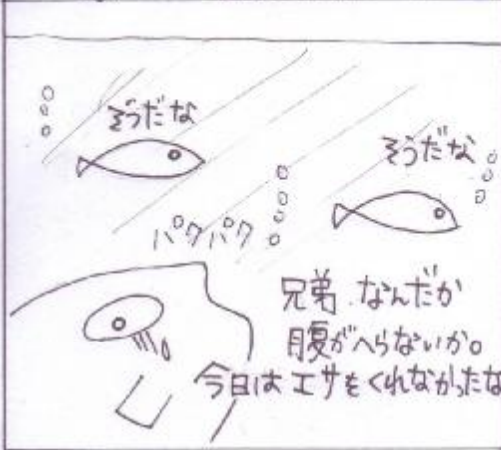 そうだな
そうだな
パクパク
兄弟、なんだか
腹がへらないか。
今日はエサをくれなかったな